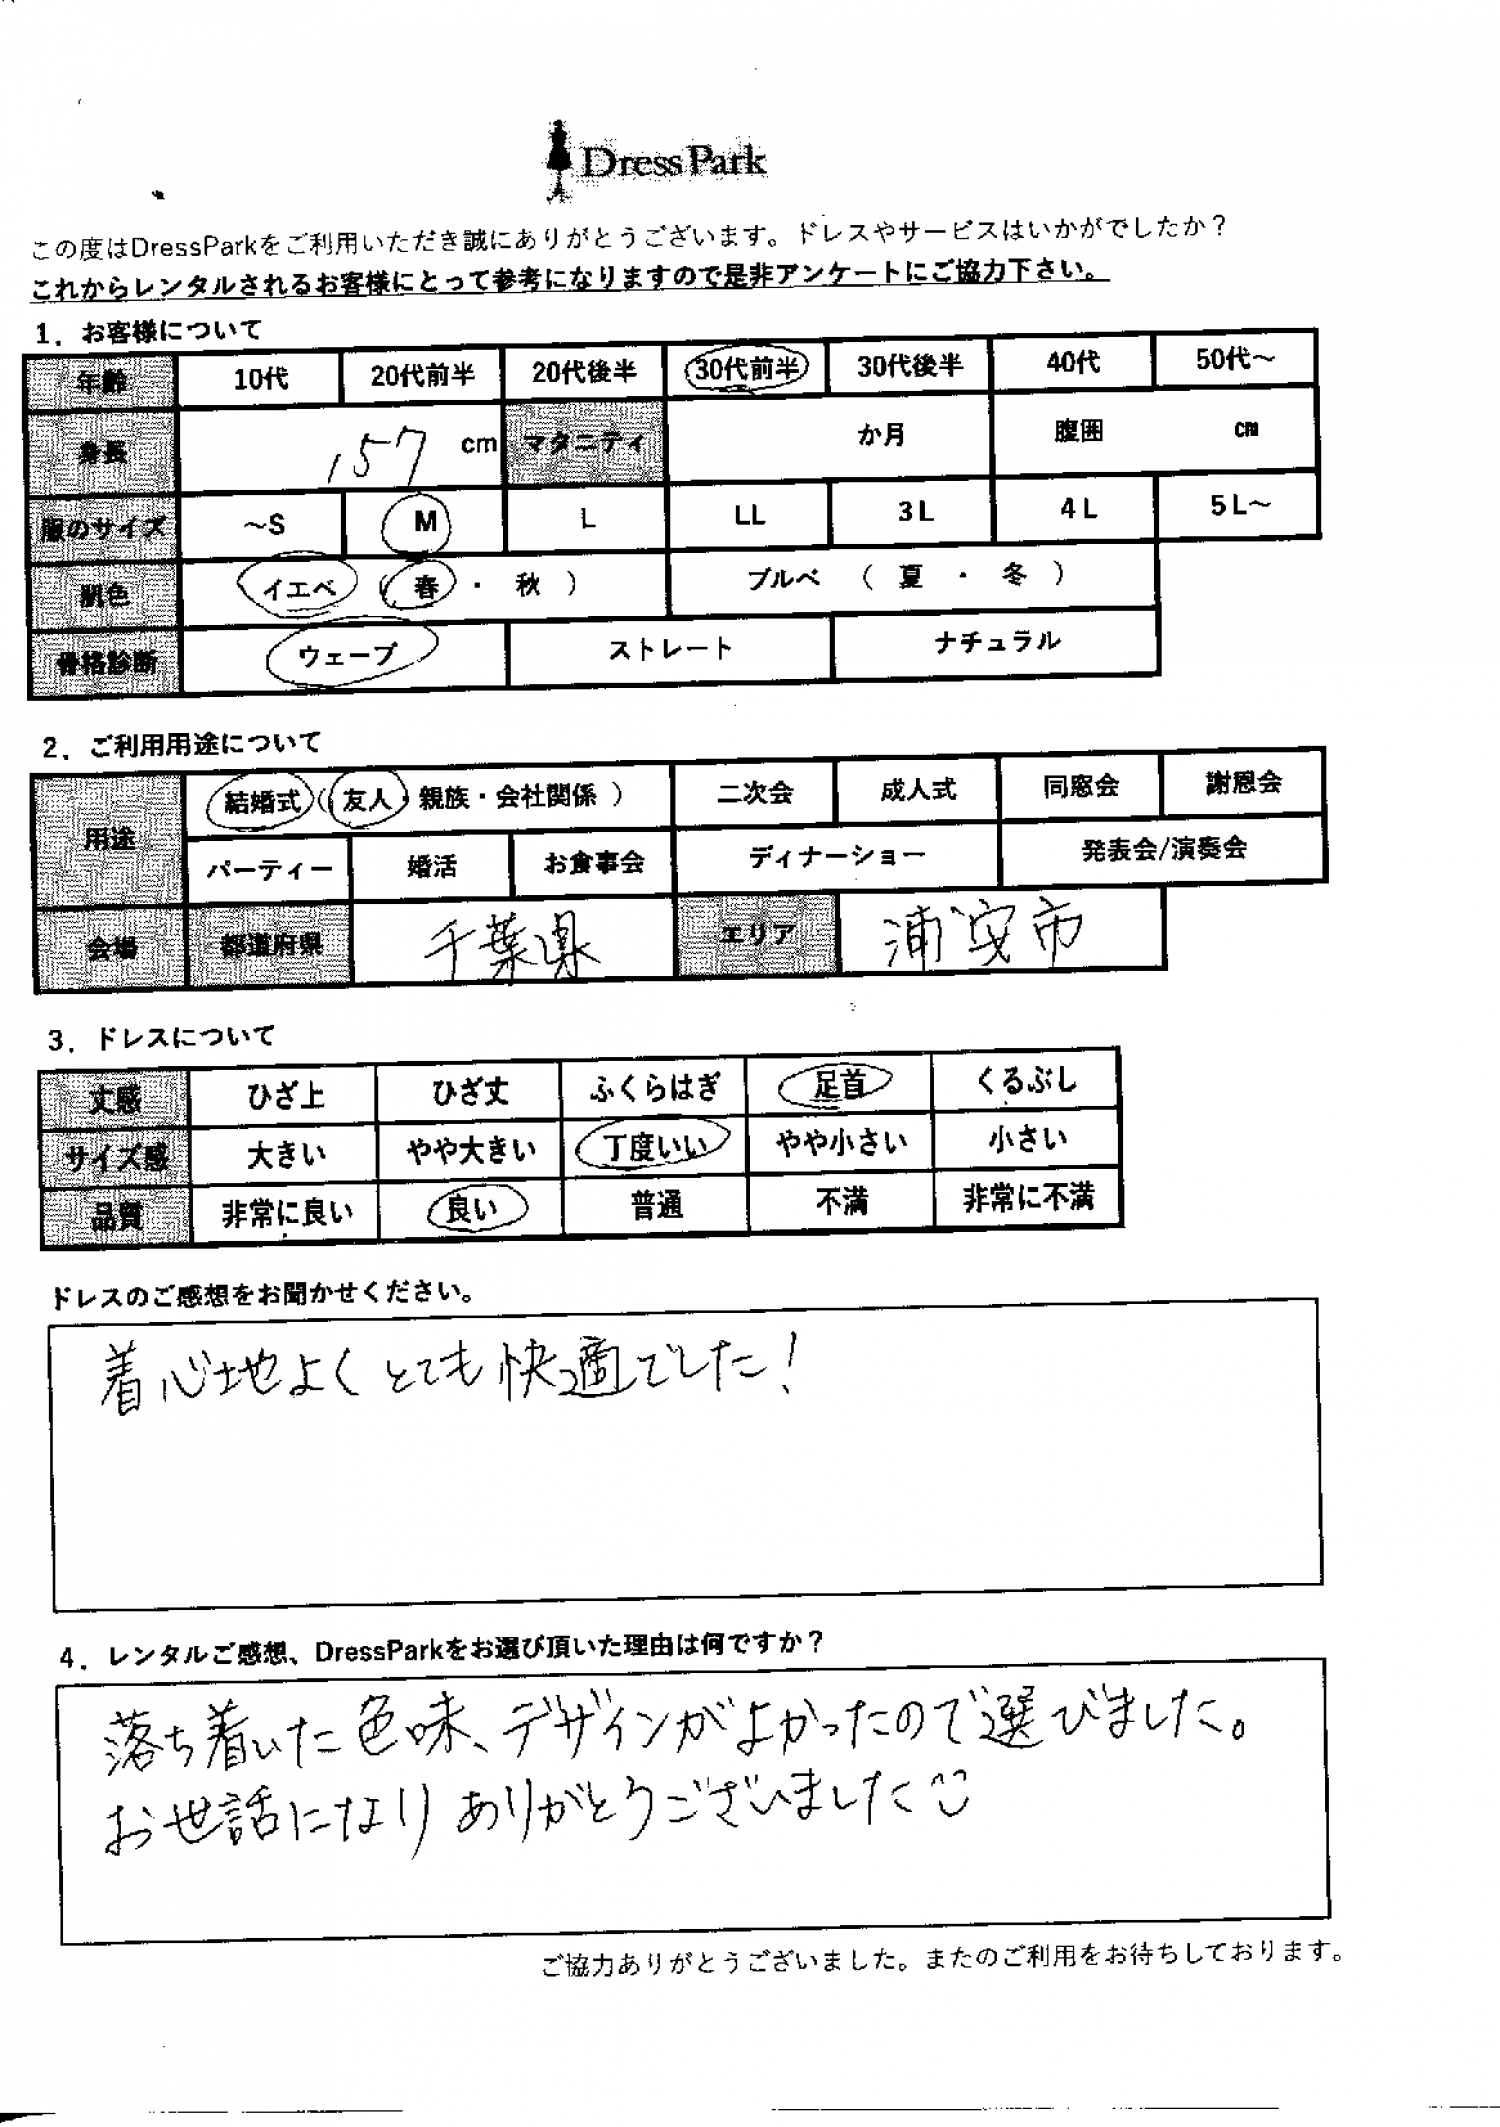 DressPark
この度はDressParkをご利用いただき誠にありがとうございます。ドレスやサービスはいかがでしたか？
これからレンタルされるお客様にとって参考になりますので是非アンケートにご協力下さい。
1．お客様について
年齢 10代 20代前半 20代後半 30代前半 30代後半 40代 50代～
身長 157 cm マタニティ か月 腹囲 cm
服のサイズ ～S M L LL 3L 4L 5L～
肌色 イエベ （ 春 ・ 秋 ） ブルベ （ 夏 ・ 冬 ）
骨格診断 ウェーブ ストレート ナチュラル
2．ご利用用途について
用途 結婚式（友人・親族・会社関係 ） 二次会 成人式 同窓会 謝恩会
パーティー 婚活 お食事会 ディナーショー 発表会/演奏会
会場 都道府県 千葉県 エリア 浦安市
3．ドレスについて
丈感 ひざ上 ひざ丈 ふくらはぎ 足首 くるぶし
サイズ感 大きい やや大きい 丁度いい やや小さい 小さい
品質 非常に良い 良い 普通 不満 非常に不満
ドレスのご感想をお聞かせください。
着心地よくとても快適でした！
4．レンタルご感想、DressParkをお選び頂いた理由は何ですか？
落ち着いた色味、デザインがよかったので選びました。
お世話になりありがとうございました
ご協力ありがとうございました。またのご利用をお待ちしております。